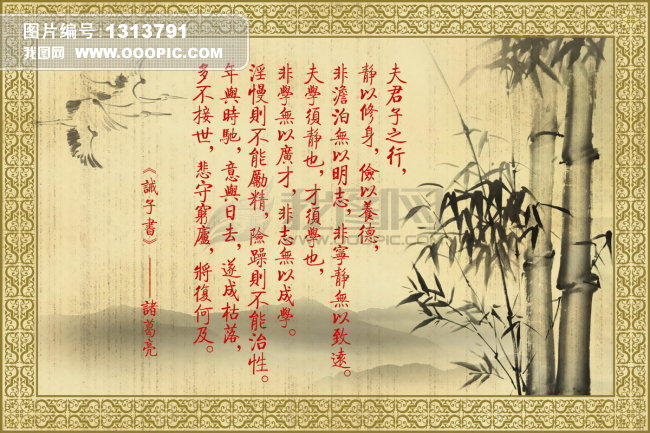 图片编号：1313791
我图网 www.OOOPIC.com
夫君子之行，
靜以修身，儉以養德，
非澹泊無以明志，非寧靜無以致遠。
夫學須靜也，才須學也，
非學無以廣才，非志無以成學。
淫慢則不能勵精，險躁則不能治性。
年與時馳，意與日去，遂成枯落，
多不接世，悲守窮廬，將復何及。
《誡子書》——諸葛亮
我图网
WWW.OOOPIC.COM